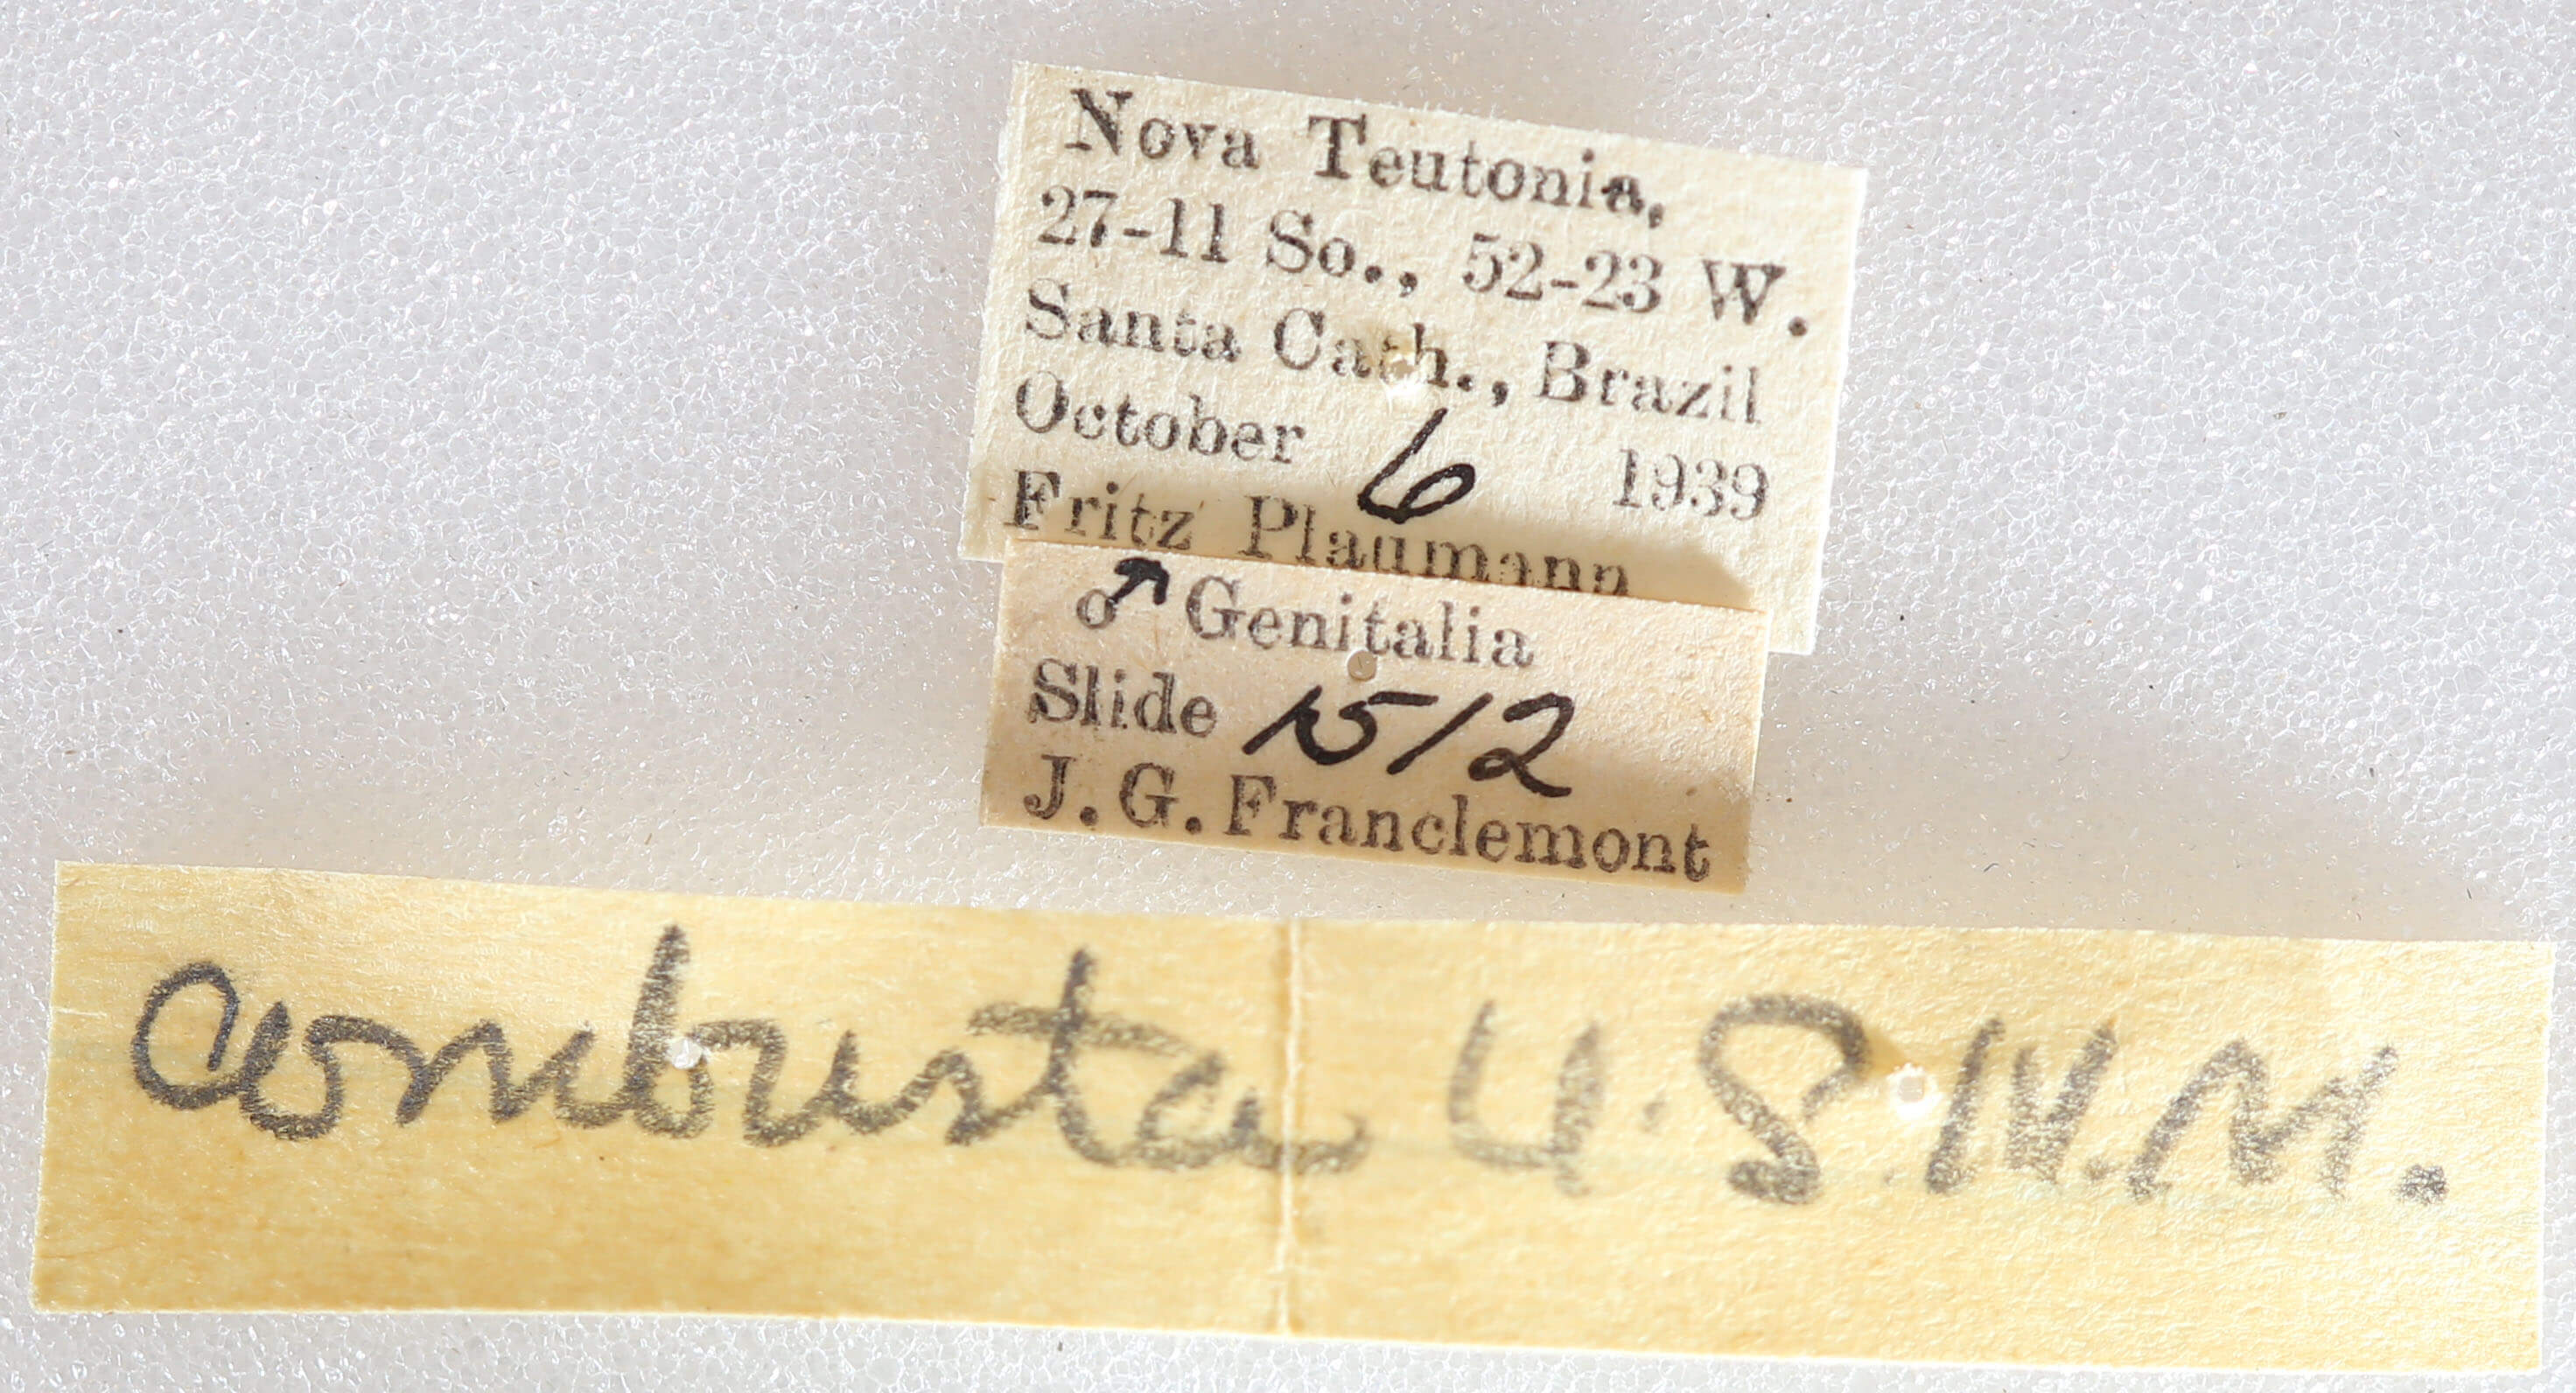 Nova Teutonia,
27-11 So., 52-23 W.
Santa Cath., Brazil
October 6 1939
Fritz Plaumann
♂ Genitalia
Slide 1512
J. G. Franclemont
combusta U.S.N.M.